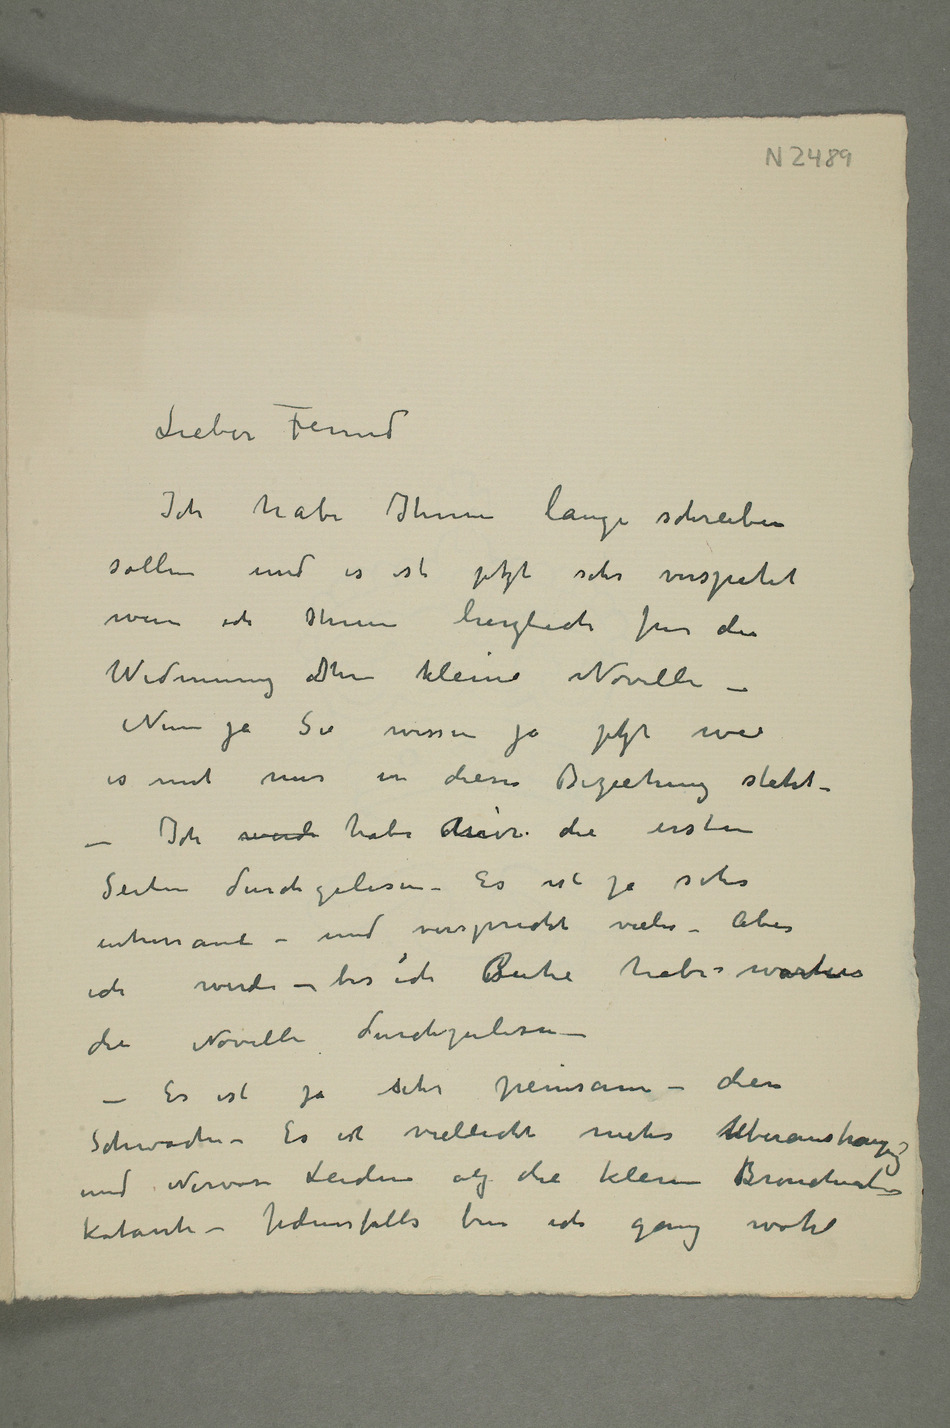 N 2489
Lieber Freund
Ich habe Ihnen lange schreiben
sollen und es ist jetzt sehr verspätet
wenn ich Ihnen herzlich für die
Widmung Ihre kleine Novelle –
Nun ja Sie wissen ja jetzt wie
es mit mir in dieser Beziehung steht –
– Ich werde habe hier die ersten
Seiten durchgelesen – Es ist ja sehr
interesant – und verspricht vieles – Aber
ich werde – bis ich Ruhe habe warten
die Novelle durchzulesen –
– Es ist ja sehr peinsam – diese
Schwäche – Es ist vielleicht mehr Uberanstrengung
und Nervose Leiden als die kleine Bronchial-
katarrh – Jedenfalls bin ich ganz wohl